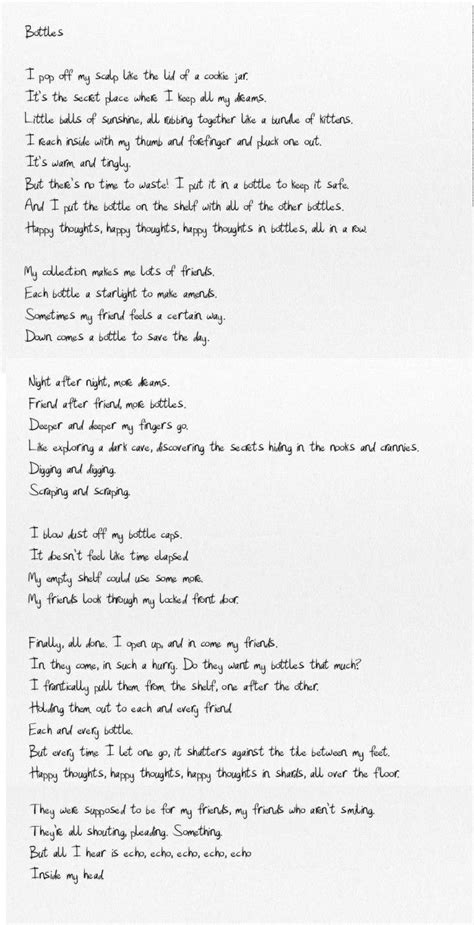 Bottles
I pop off my scalp like the lid of a cookie jar.
It's the secret place where I keep all my dreams.
Little balls of sunshine, all rubbing together like a bundle of kittens.
I reach inside with my thumb and forefinger and pluck one out.
It's warm and tingly.
But there's no time to waste! I put it in a bottle to keep it safe.
And I put the bottle on the shelf with all of the other bottles.
Happy thoughts, happy thoughts, happy thoughts in bottles, all in a row.
My collection makes me lots of friends.
Each bottle a starlight to make amends.
Sometimes my friend feels a certain way.
Down comes a bottle to save the day.
Night after night, more dreams.
Friend after friend, more bottles.
Deeper and deeper my fingers go.
Like exploring a dark cave, discovering the secrets hiding in the nooks and crannies.
Digging and digging.
Scraping and scraping.
I blow dust off my bottle caps.
It doesn't feel like time elapsed
My empty shelf could use some more.
My friends look through my locked front door.
Finally, all done. I open up, and in come my friends.
In they come, in such a hurry. Do they want my bottles that much?
I frantically pull them from the shelf, one after the other.
Holding them out to each and every friend
Each and every bottle.
But every time I let one go, it shatters against the tile between my feet.
Happy thoughts, happy thoughts, happy thoughts in shards, all over the floor.
They were supposed to be for my friends, my friends who aren't smiling.
They're all shouting, pleading. Something.
But all I hear is echo, echo, echo, echo, echo
Inside my head